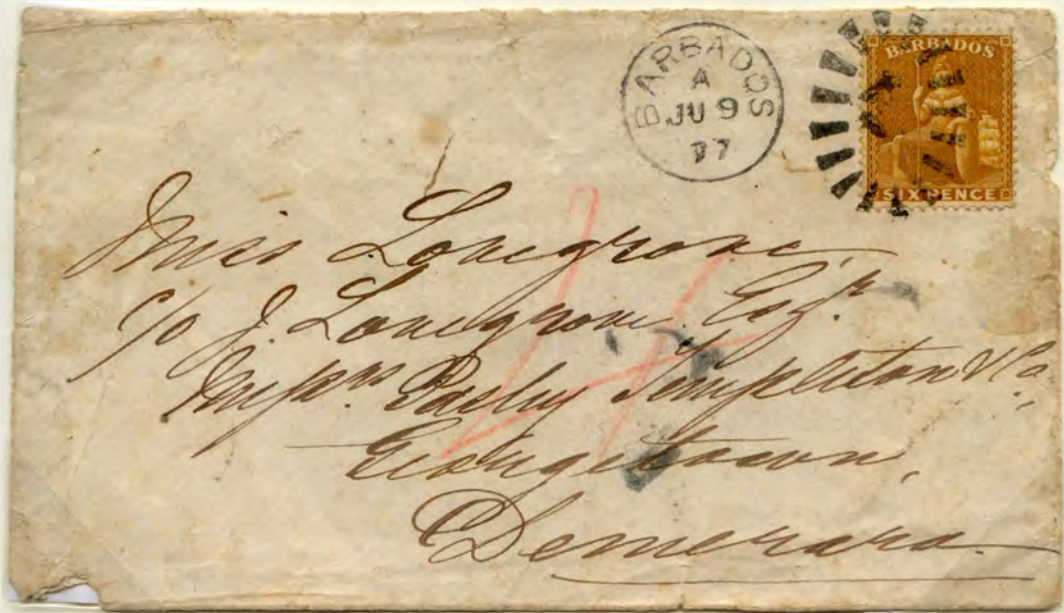 BARBADOS
A
JU 9
77
BARBADOS
SIX PENCE
Miss Lovegrove,
c/o J. Lovegrove Esqr.
Messrs. Pasley Templeton & Co,
Georgetown,
Demerara.
4